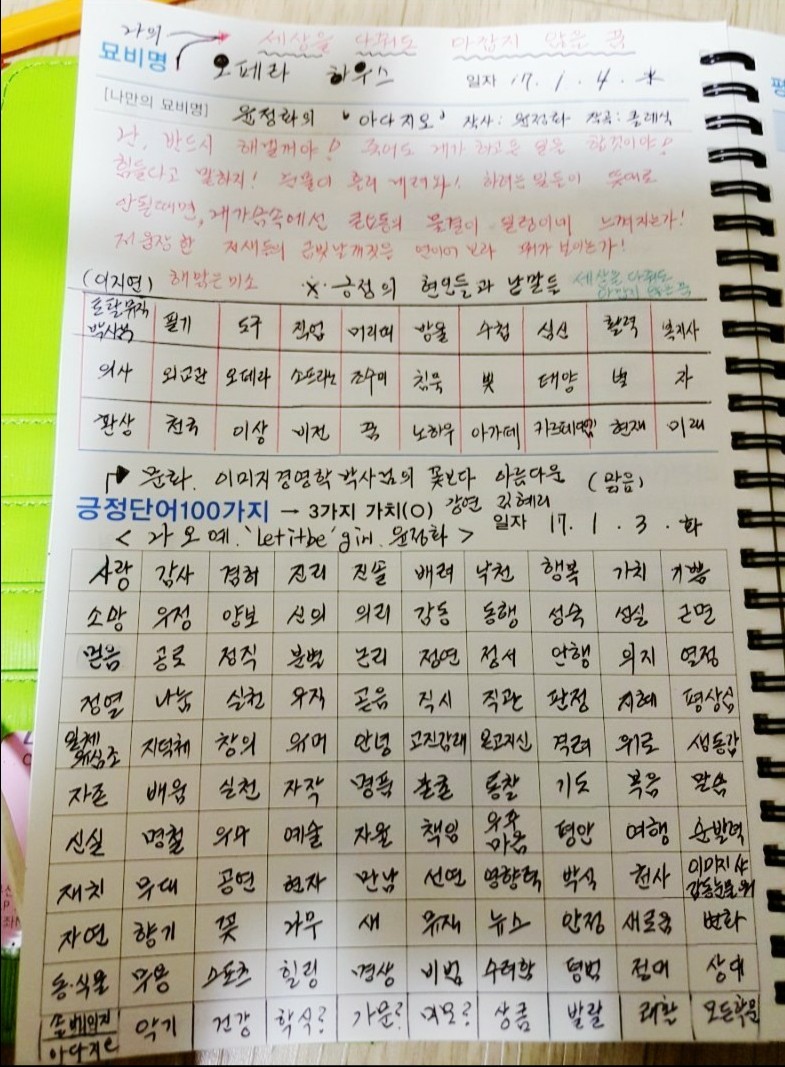 나의
세상을 다줘도 바꾸지 않을 꿈
묘비명 오페라 하우스 일자 17. 1. 4. 水
[나만의 묘비명] 윤정화의 '아다지오' 작사: 윤정화 작곡: 클래식
난, 반드시 해낼꺼야! 죽어도 내가 하고픈 일은 할것이야!
힘들다고 말하지! 눈물이 흘러 내려와! 하려는 일들이 뜻대로
안될때면, 내가슴속에선 물결이 느껴지는가!
저 웅장한 금빛날개짓은 보이는가!
(이지연) 해맑은미소 ※ 긍정의 현인들과 낱말들 세상을 다줘도
꿈
박사님 필기 도구 직업 머리띠 방울 수첩 심신 활력 복지사
의사 외교관 오페라 소프라노 조수미 침묵 빛 태양 별 자
환상 천국 이상 비전 꿈 노하우 아가페 카르페디엠 현재 미래
문화. 이미지경영학박사님의 꽃보다 아름다운 (맑음)
긍정단어100가지 → 3가지 가치(O) 강연 김혜리
일자 17. 1. 3. 화
'Let it be' gin. 윤정화 >
사랑 감사 겸허 진리 진솔 배려 낙천 행복 가치 기쁨
소망 우정 양보 신의 의리 감동 동행 성숙 성실 근면
믿음 공로 정직 분별 논리 정연 정서 안행 의지 열정
정열 나눔 실천 우직 곧음 직시 직관 판정 지혜 평상심
일체유심조 지덕체 창의 유머 안녕 고진감래 온고지신 격려 위로 생동감
자존 배움 실천 자작 명품 출중 통찰 기도 복음 말씀
신실 명철 의무 예술 자율 책임 우주마음 평안 여행 순발력
재치 무대 공연 현자 만남 선연 영향력 박식 천사 이미지
자연 향기 꽃 나무 새 유재 뉴스 안정 새로움 변화
동·식물 무용 스포츠 힐링 명상 비법 수려함 평범 절예 상대
솔베이지 악기 건강 학식? 가문? 외모? 상큼 발랄 쾌활 모든학문
아다지오